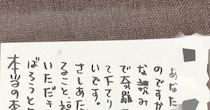 あなた
のですか
な読み
で奇蹟
て下り
いです。
さしあた
ること、短
いただき
ばろうと
本当の本